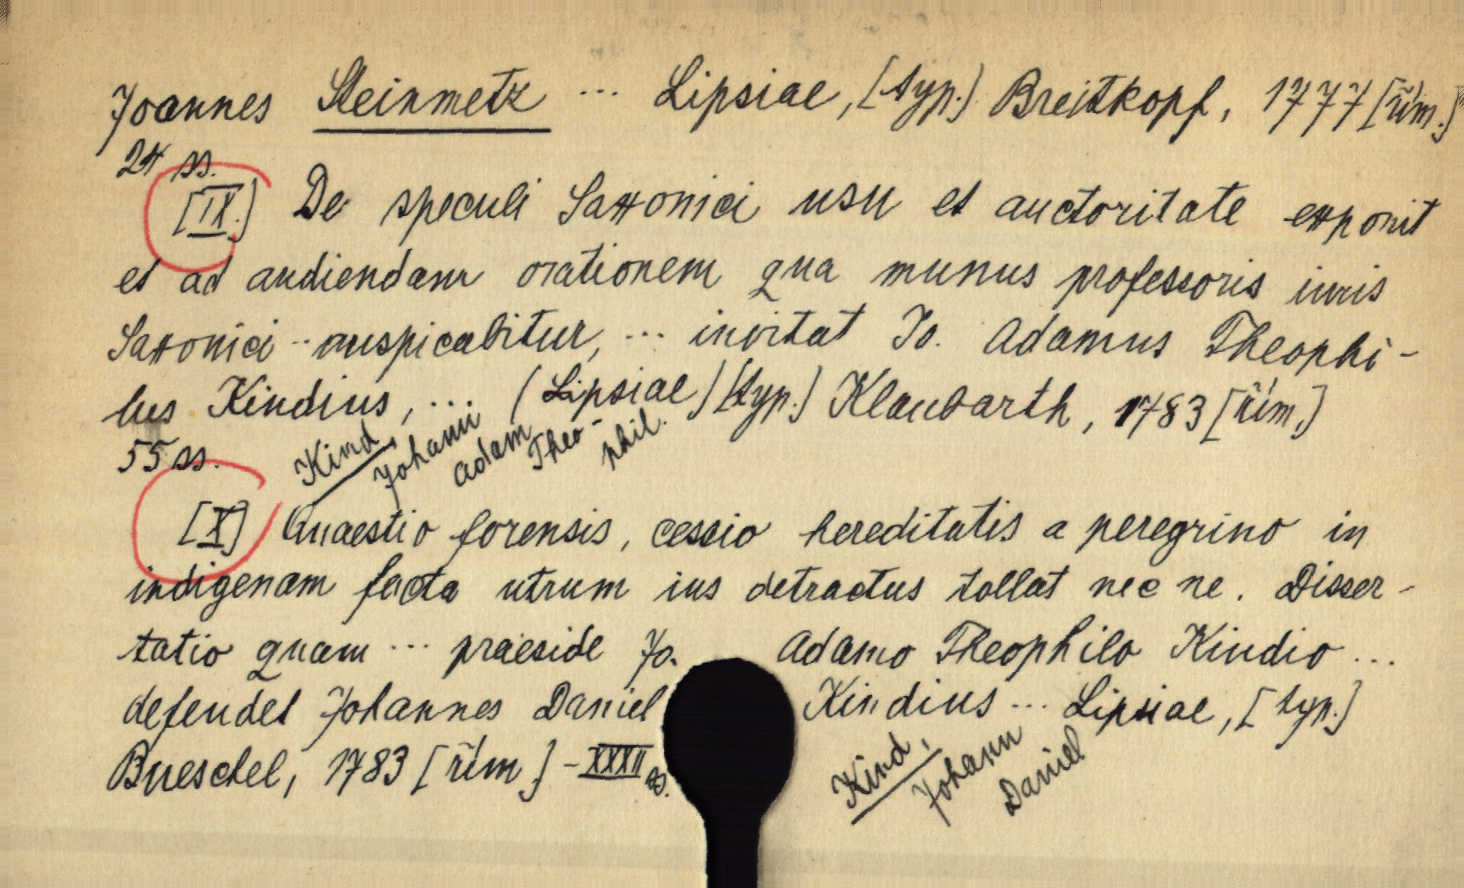 Joannes Steinmetz ... Lipsiae, [typ.] Breitkopf, 1777 [rim.]
24 ss.
[IX.] De speculi Saxonici usu et auctoritate exponit
et ad audiendam orationem qua munus professoris iuris
Saxonici auspicabitur, ... invitat Jo. Adamus Theophi-
lus Kindius, ... (Lipsiae) [typ.] Klaubarth, 1783 [rim.]
55 ss. Kind, Johann Adam Theo-
phil.
[X] Quaestio forensis, cessio hereditatis a peregrino in
indigenam facta utrum ius detractus tollat nec ne. Disser-
tatio quam ... praeside Jo. Adamo Theophilo Kindio ...
defendet Johannes Daniel Kindius ... Lipsiae, [typ.]
Bueschel, 1783 [rim.] - XXXII ss.
Kind, Johann Daniel